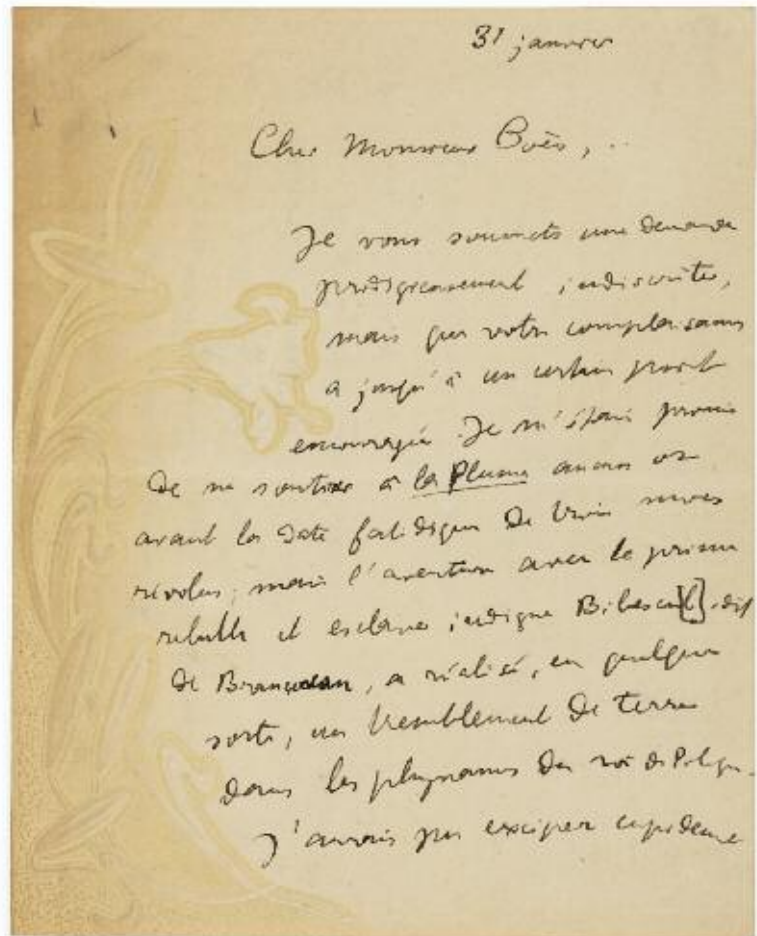 31 janvier
Cher Monsieur Boès,
Je vous soumets une demande
prodigieusement indiscrète,
mais que votre complaisance
a jusqu'à un certain point
encouragée. Je m'étais promis
de ne soutirer à la Plume aucun or
avant la date fatidique de trois mois
révolus; mais l'aventure avec le prince
rebelle et esclave indigne dit
de Brancovan, a réalisé, en quelque
sorte, un tremblement de terre
dans les phynances du roi de Pologne.
J'aurais pu exciper cependant